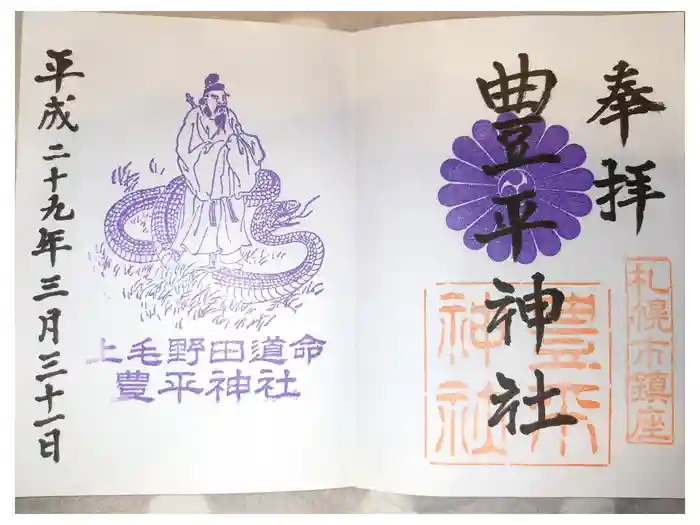 奉拝
札幌市鎮座
豊平神社
豊平神社
上毛野田道命
豊平神社
平成二十九年三月三十一日